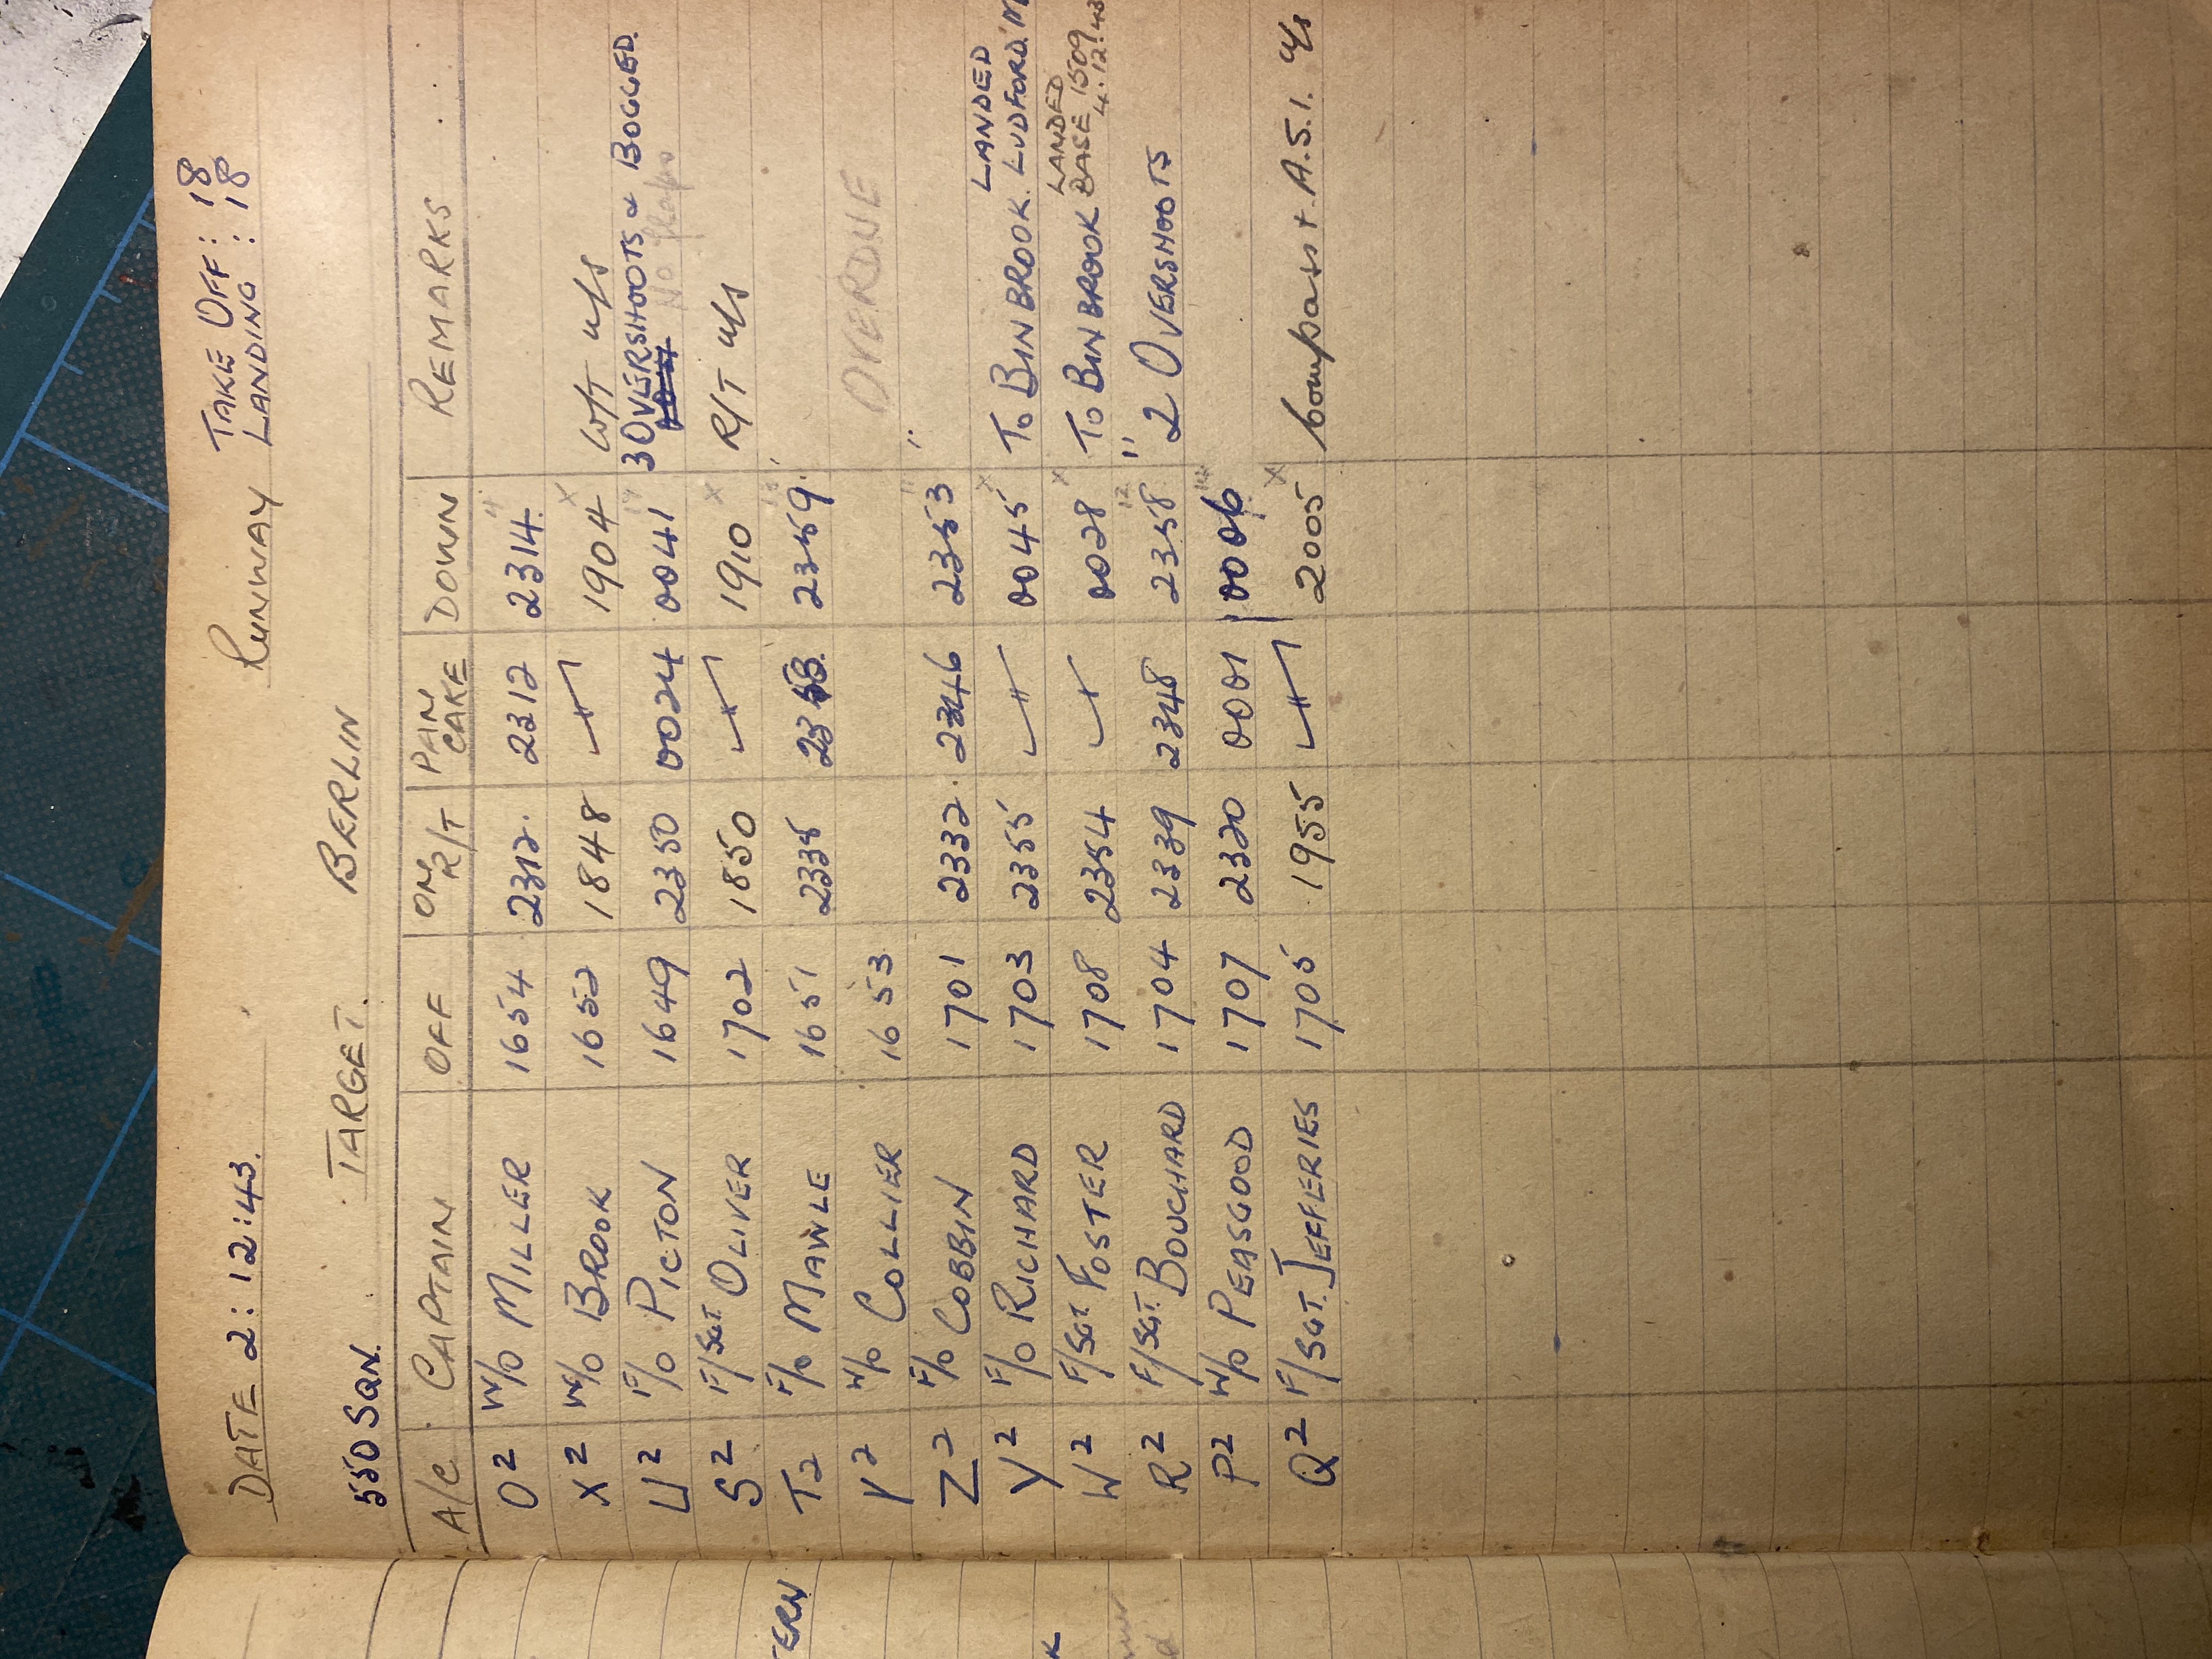 DATE 2:12:43. RUNWAY TAKE OFF: 18
LANDING: 18
TARGET. BERLIN
550 SQN.
A/C. CAPTAIN OFF ON R/T PAN CAKE DOWN REMARKS
O2 W/O MILLER 1654 2312. 2312 2314.
X2 W/O BROOK 1652 1848 1904 W/T u/s
U2 F/O PICTON 1649 2350 0024 0041 3 OVERSHOOTS & BOGGED.
No flaps
S2 F/SGT OLIVER 1702 1850 1910 R/T u/s
T2 F/O MAWLE 1651 2335 2359.
W/O COLLIER 1653 OVERDUE
Z2 F/O COBBIN 1701 2332. 2346 2353
F/O RICHARD 1703 2355 0045 TO BINBROOK. LANDED LUDFORD
W2 F/SGT FOSTER 1708 2354 0028 TO BINBROOK LANDED BASE 1509 4:12:43
R2 F/SGT. BOUCHARD 1704 2339 2348 2358 2 OVERSHOOTS
P2 W/O PEASGOOD 1707 2320 0001 0006
Q2 F/SGT. JEFFERIES 1705 1955 2005 Compass + A.S.I. u/s